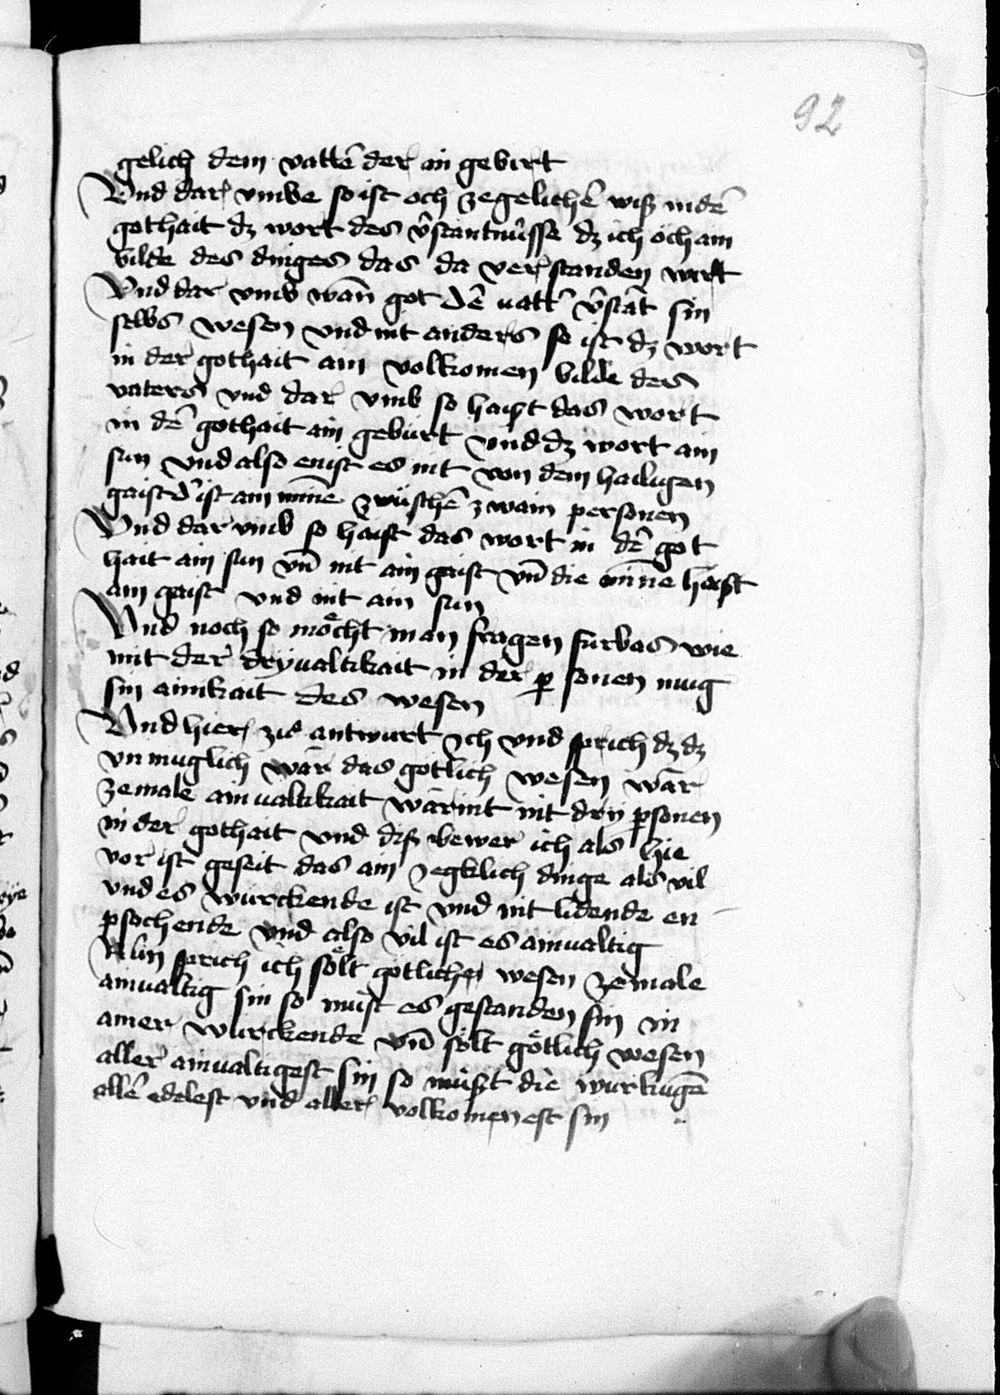 92
gelich dem vattē der in gebirt
Vnd dar vmbe so ist och ze gelichē wiß in dē
gothait dz wort des v̄stantnûsse dz ich och ain
bilde des dinges das da verstanden wirt
Vnd dar vmb wān got dē vattē v̄stāt sin
selbs wesen vnd nit anders so ist dz wort
in der gothait ain volkomen bilde des
vaters vnd dar vmb so haist das wort
in dē gothait ain geburt vnd dz wort ain
sun vnd also enist es nit von dem hailigen
gaist d ist ain minne zwüschē zwain personen
Vnd dar vmb so haist das wort in dē got
hait ain sun vn̄ nit ain gaist vn̄ die minne haist
ain gaist vnd nit ain sun
Vnd noch so möcht man fragen furbas wie
mit der dryualtikait in der p sonen mug
sin ainikait des wesen
Vnd hier zů antwurt ich vnd sprich dz dz
vnmuglich wār das gotlich wesen wār
zemale ainualtikait wārint nit dry psonen
in der gothait vnd diß bewer ich als hie
vor ist geseit das ain yegklich dinge als vil
vnd es wurckende ist vnd nit lidende en
psachende vnd also vil ist es ainualtig
Nun sprich ich sölt götliches wesen zemale
ainualtig sin so müst es gestanden sin in
ainer wurckende vn̄ sölt götlich wesen
aller ainualtigest sin so müßt die würkugē
allē edelest vnd aller volkomenest sin